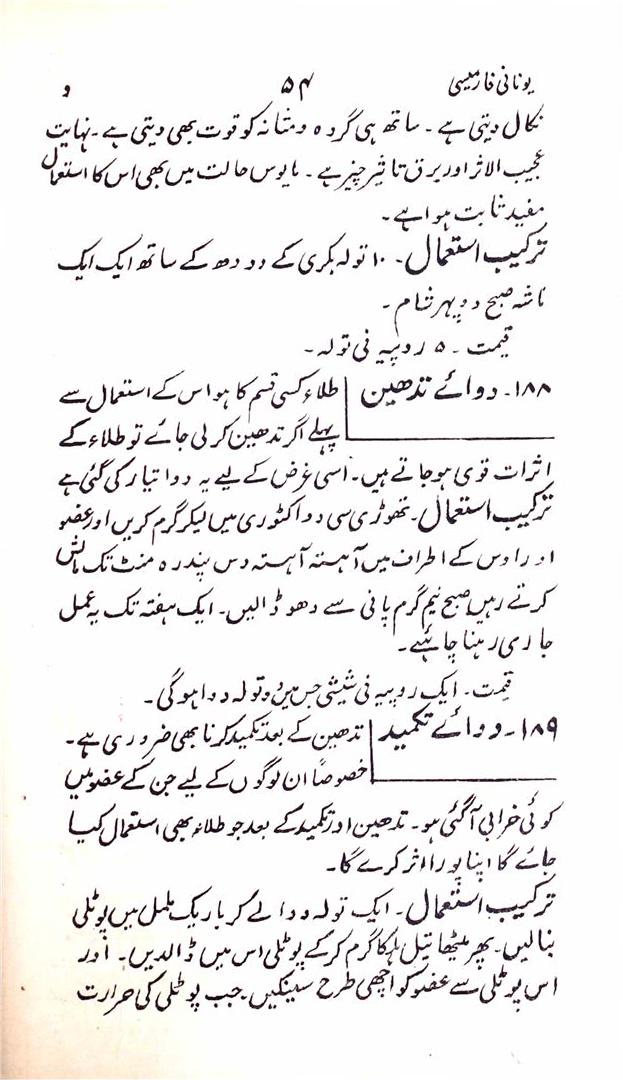 یونانی فارمیسی ۵۴ و
نکال دیتی ہے۔ ساتھ ہی گردہ و مثانہ کو قوت بھی دیتی ہے۔ نہایت
عجیب الاثر اور برق تاثیر چیز ہے۔ مایوس حالت میں بھی اس کا استعمال
مفید ثابت ہوا ہے۔
ترکیب استعمال۔ ۱۰ تولہ بکری کے دودھ کے ساتھ ایک ایک
ماشہ صبح دوپہر شام۔
قیمت۔ ۵ روپیہ فی تولہ۔
۱۸۸۔ دوائے تدھین طلاء کسی قسم کا ہو اس کے استعمال سے
پہلے اگر تدھین کر لی جائے تو طلاء کے
اثرات قوی ہو جاتے ہیں۔ اسی غرض کے لیے یہ دوا تیار کی گئی ہے
ترکیب استعمال۔ تھوڑی سی دوا کٹوری میں لیکر گرم کریں اور عضو
اور اوس کے اطراف میں آہستہ آہستہ دس پندرہ منٹ تک مالش
کرتے رہیں صبح نیم گرم پانی سے دھو ڈالیں۔ ایک ہفتہ تک یہ عمل
جاری رہنا چاہئیے۔
قیمت۔ ایک روپیہ فی شیشی جس میں تولہ دوا ہوگی۔
۱۸۹۔ دوائے تکمید تدھین کے بعد تکمید کرنا بھی ضروری ہے۔
خصوصاً ان لوگوں کے لیے جن کے عضو میں
کوئی خرابی آگئی ہو۔ تدھین اور تکمید کے بعد جو طلاء بھی استعمال کیا
جائے گا اپنا پورا اثر کرے گا۔
ترکیب استعمال۔ ایک تولہ دوا لے کر باریک ململ میں پوٹلی
بنالیں۔ پھر میٹھا تیل ہلکا گرم کرکے پوٹلی اس میں ڈالدیں۔ اور
اس پوٹلی سے عضو کو اچھی طرح سینکیں۔ جب پوٹلی کی حرارت